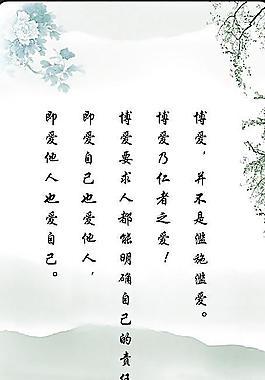 博爱，并不是滥施滥爱。
博爱乃仁者之爱！
博爱要求人都能明确自己的责任
即爱自己也爱他人，
即爱他人也爱自己。